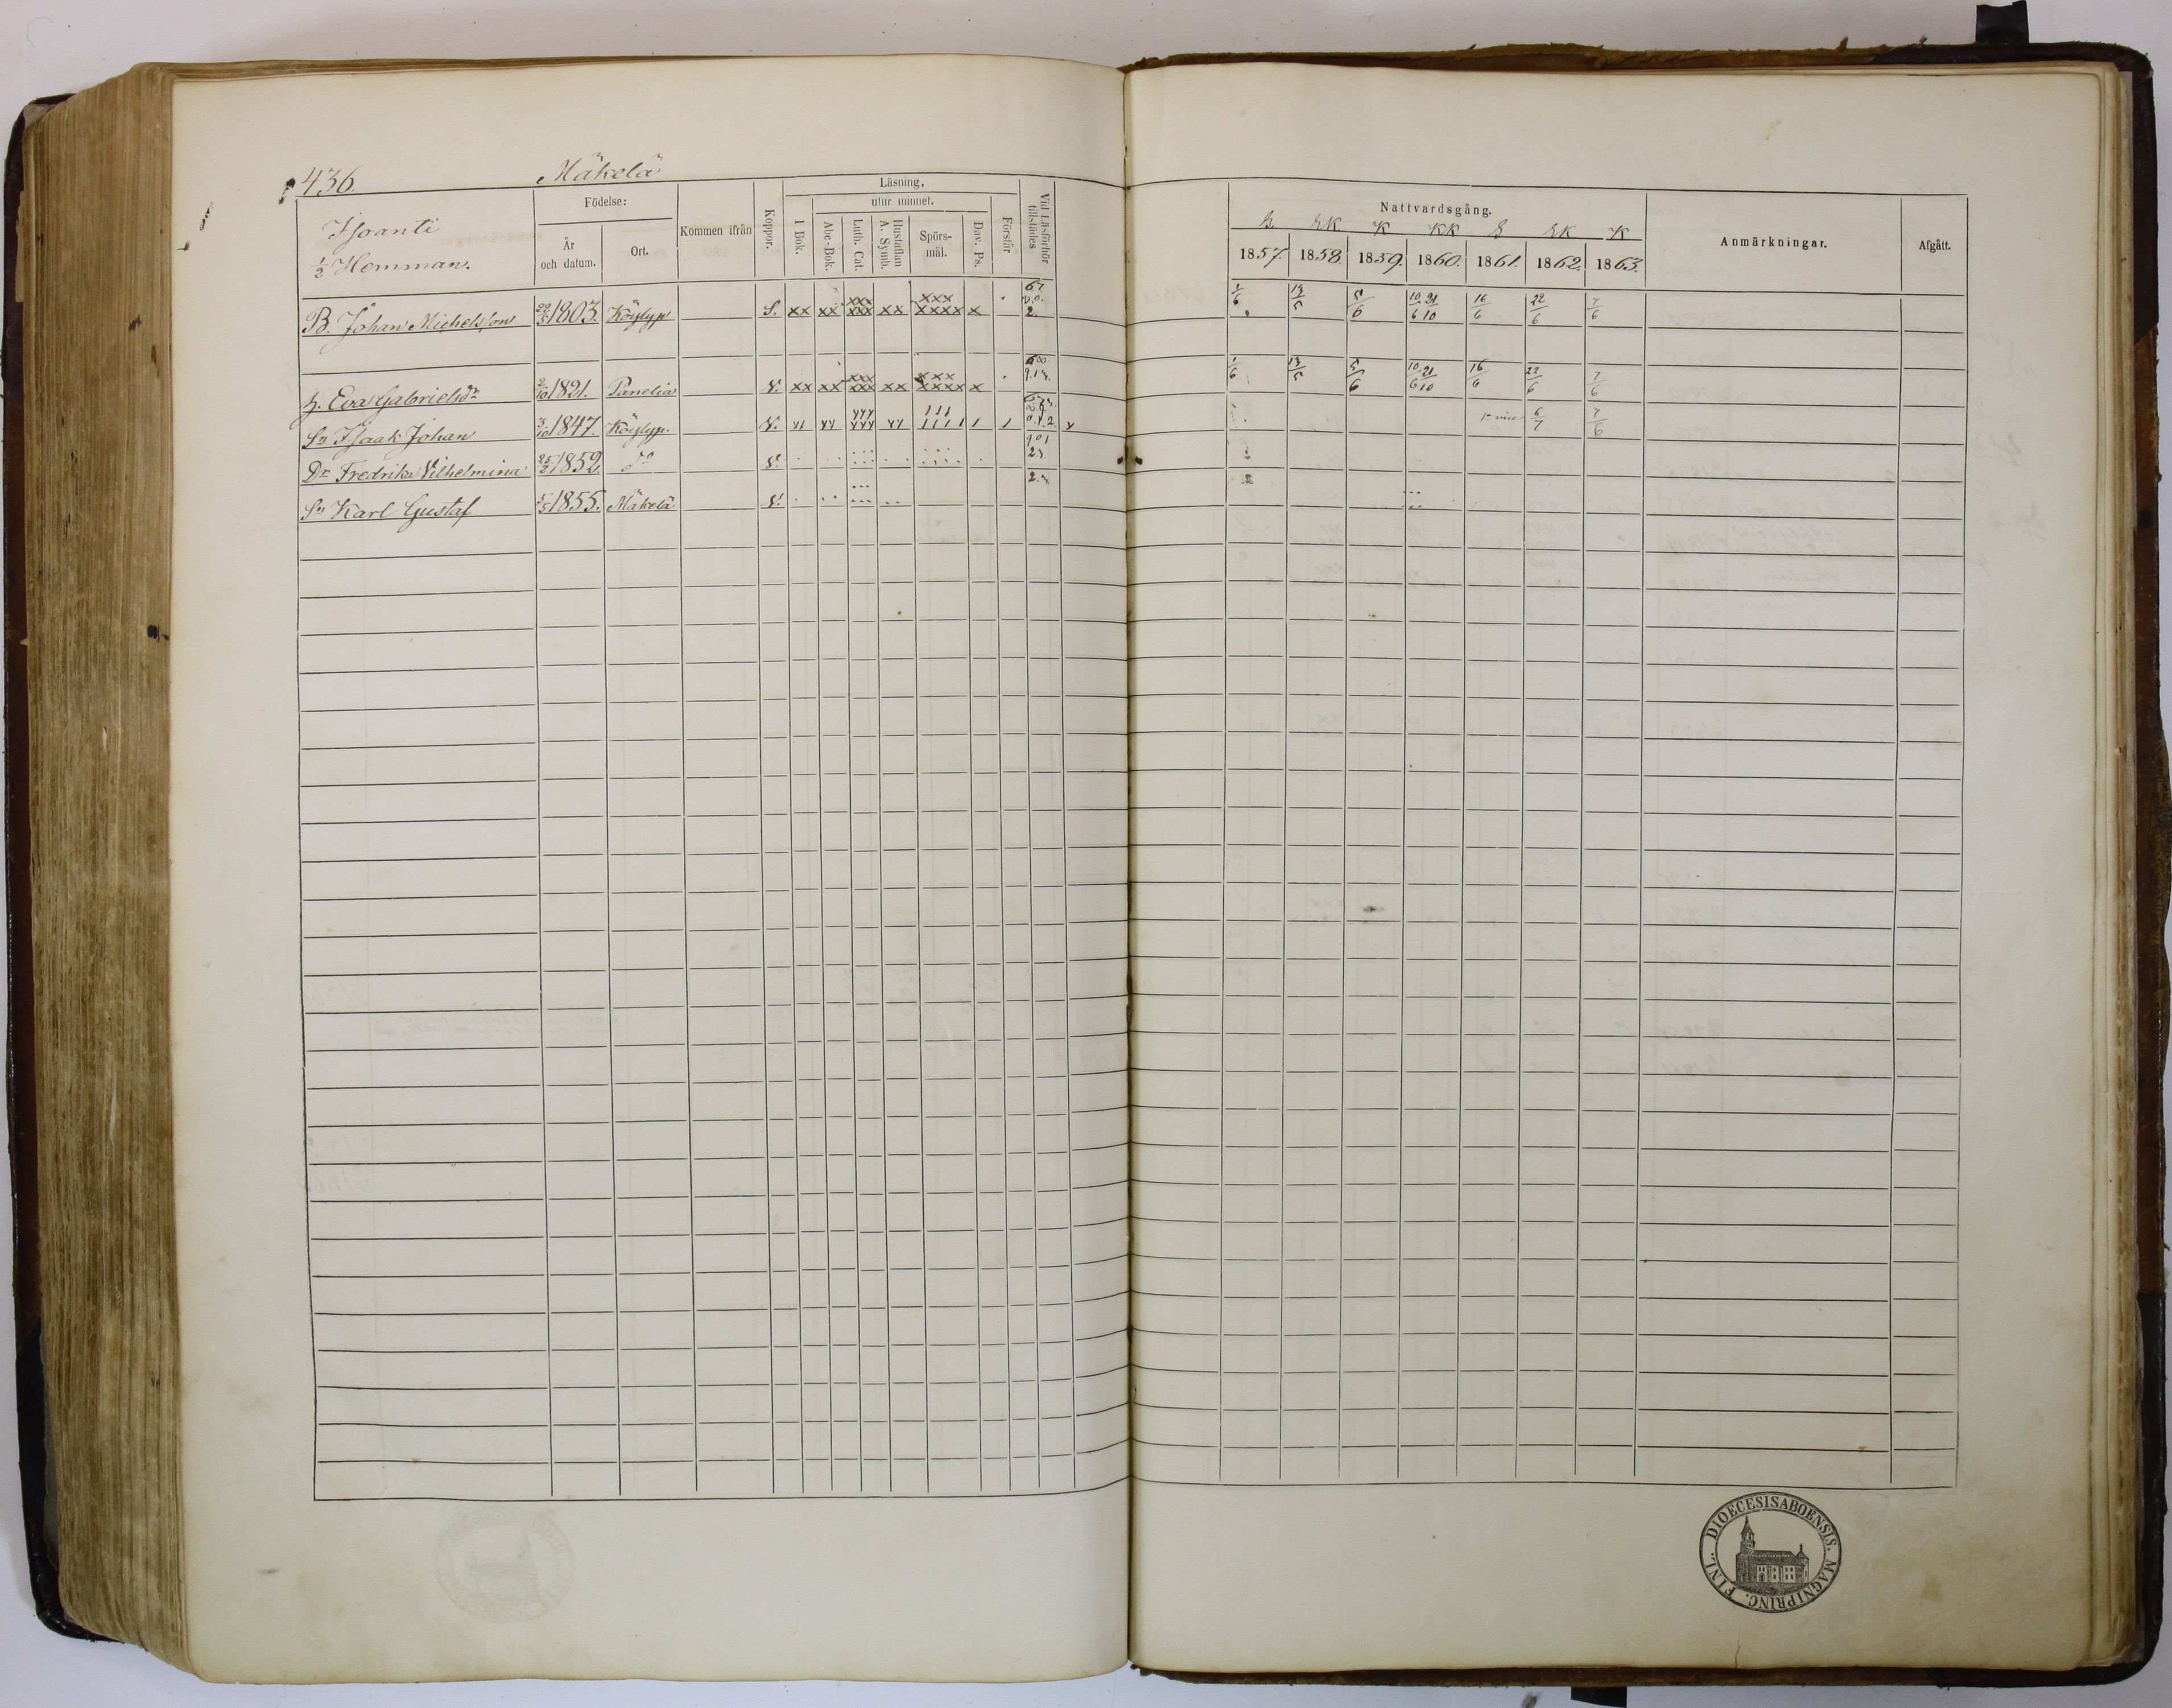 436. Mäkelä
Isoanti
½ Hemman.
Födelse:
År och datum.
Ort.
Kommen ifrån
Koppor.
Läsning.
utur minnet.
I Bok.
Abc-Bok.
Luth. Cat.
Hustaflan A. Symb.
Spörs-mål.
Dav. Ps.
Förstår
Vid Läsförhör tillstädes
Nattvardsgång.
K KK S KK K
1857. 1858. 1859. 1860. 1861. 1862. 1863.
Anmärkningar.
Afgått.
B. Johan Michelsson 1803. Köylyp. S. xx xx xxx xxx xx xxx xxxx x 1/6 13/5 5/6 10/6 21/10 16/6 22/6 7/6
h. Eva Gabrielsdr 1821. Panelia V. xx xx xxx xxx xx xxx xxxx x 1/6 13/5 5/6 10/6 21/10 16/6 22/6 7/6
Sn Isaak Johan 3/10 1847. Köylyp. V. 6/7 7/6
Dr Fredrika Vilhelmina 25/2 1852. do V.
Sn Karl Gustaf 5/5 1855. Mäkelä V.
FINL. DIOECESIS ABOENSIS. MAGNI PRINC.